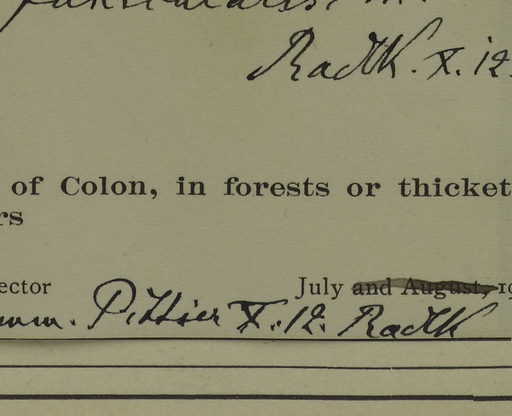 Radlk. X. 12.
of Colon, in forests or thicket
rs
ector July and August, 19
mm. Pittier X. 12. Radlk